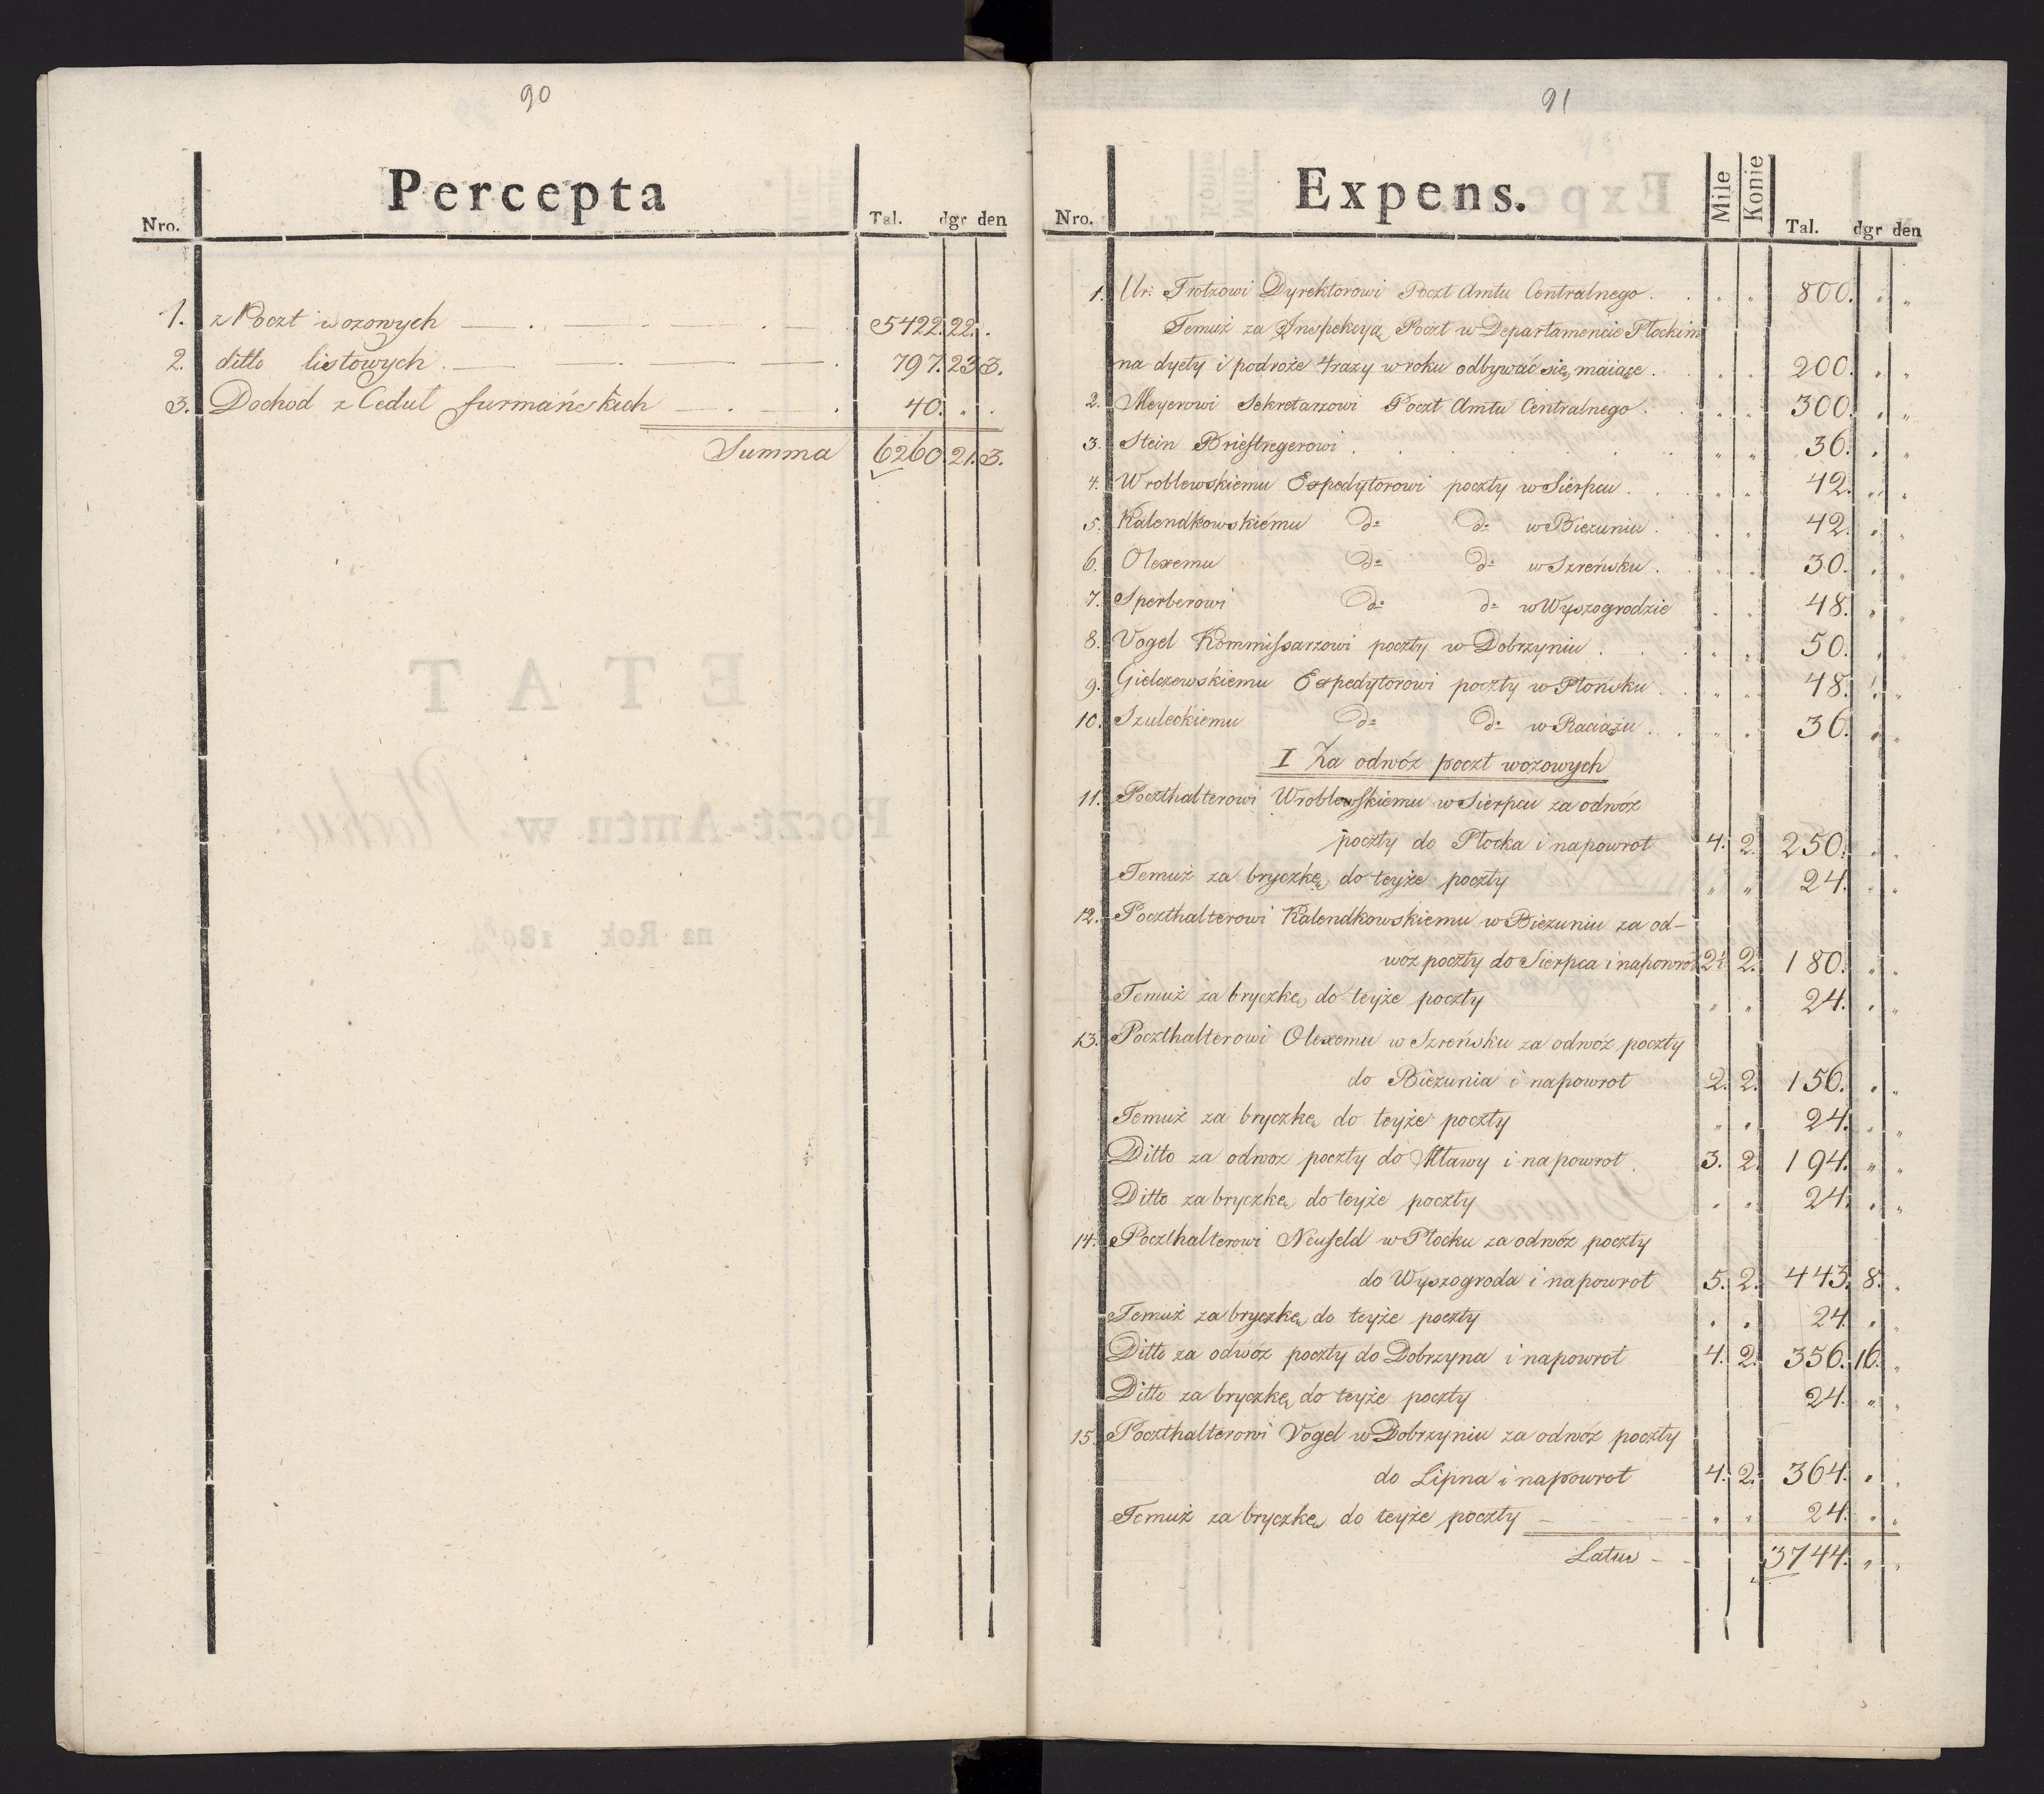 90
Percepta
Nro. Tal. dgr den
1. z Poczt wozowych 5422. 22. .
2. ditto listowych 797. 23. 3.
3. Dochod z Cedul furmańskich 40. . .
Summa 6260. 21. 3.
91
Expens.
Nro. Mile Konie Tal. dgr den
1. Ur. Trotzowi Dyrektorowi Poczt Amtu Centralnego . 800. " "
Temuż za Inspekcyą Poczt w Departamencie Płockim
na dyety i podroże 4 razy w roku odbywać się maiące . 200. " "
2. Meyerowi Sekretarzowi Poczt Amtu Centralnego . 300. " "
3. Stein Brieftregerowi . 36. " "
4. Wroblewskiemu Expedytorowi poczty w Sierpcu . 42. " "
5. Kalendkowskiemu do do w Bieżuniu . 42. " "
6. Olexemu do do w Szreńsku . 30. " "
7. Sperberowi do do w Wyszogrodzie 48. " "
8. Vogel Kommissarzowi poczty w Dobrzyniu . 50. " "
9. Gielczewskiemu Expedytorowi poczty w Płońsku . 48. " "
10. Szuleckiemu do do w Raciążu . 36. " "
I Za odwóz poczt wozowych
11. Poczthalterowi Wroblewskiemu w Sierpcu za odwóz
poczty do Płocka i napowrot 4. 2. 250. " "
Temuż za bryczkę do teyże poczty " " 24. " "
12. Poczthalterowi Kalendkowskiemu w Bieżuniu za od-
woz poczty do Sierpca i napowrot 2½ 2. 180. " "
Temuż za bryczkę do teyże poczty " " 24. " "
13. Poczthalterowi Olexemu w Szreńsku za odwoz poczty
do Bieżunia i napowrot 2. 2. 156. " "
Temuż za bryczkę do teyże poczty " " 24. " "
Ditto za odwoz poczty do Mławy i napowrot . 3. 2. 194. " "
Ditto za bryczkę do teyże poczty " " 24. " "
14. Poczthalterowi Neufeld w Płocku za odwóz poczty
do Wyszogroda i napowrot 5. 2. 443. 8. "
Temuż za bryczkę do teyże poczty " " 24. " "
Ditto za odwóz poczty do Dobrzyna i napowrot 4. 2. 356. 16. "
Ditto za bryczkę do teyże poczty 24. " "
15. Poczthalterowi Vogel w Dobrzyniu za odwóz poczty
do Lipna i napowrot 4. 2. 364. " "
Temuż za bryczkę do teyże poczty " " 24. " "
Latus - 3744. " "